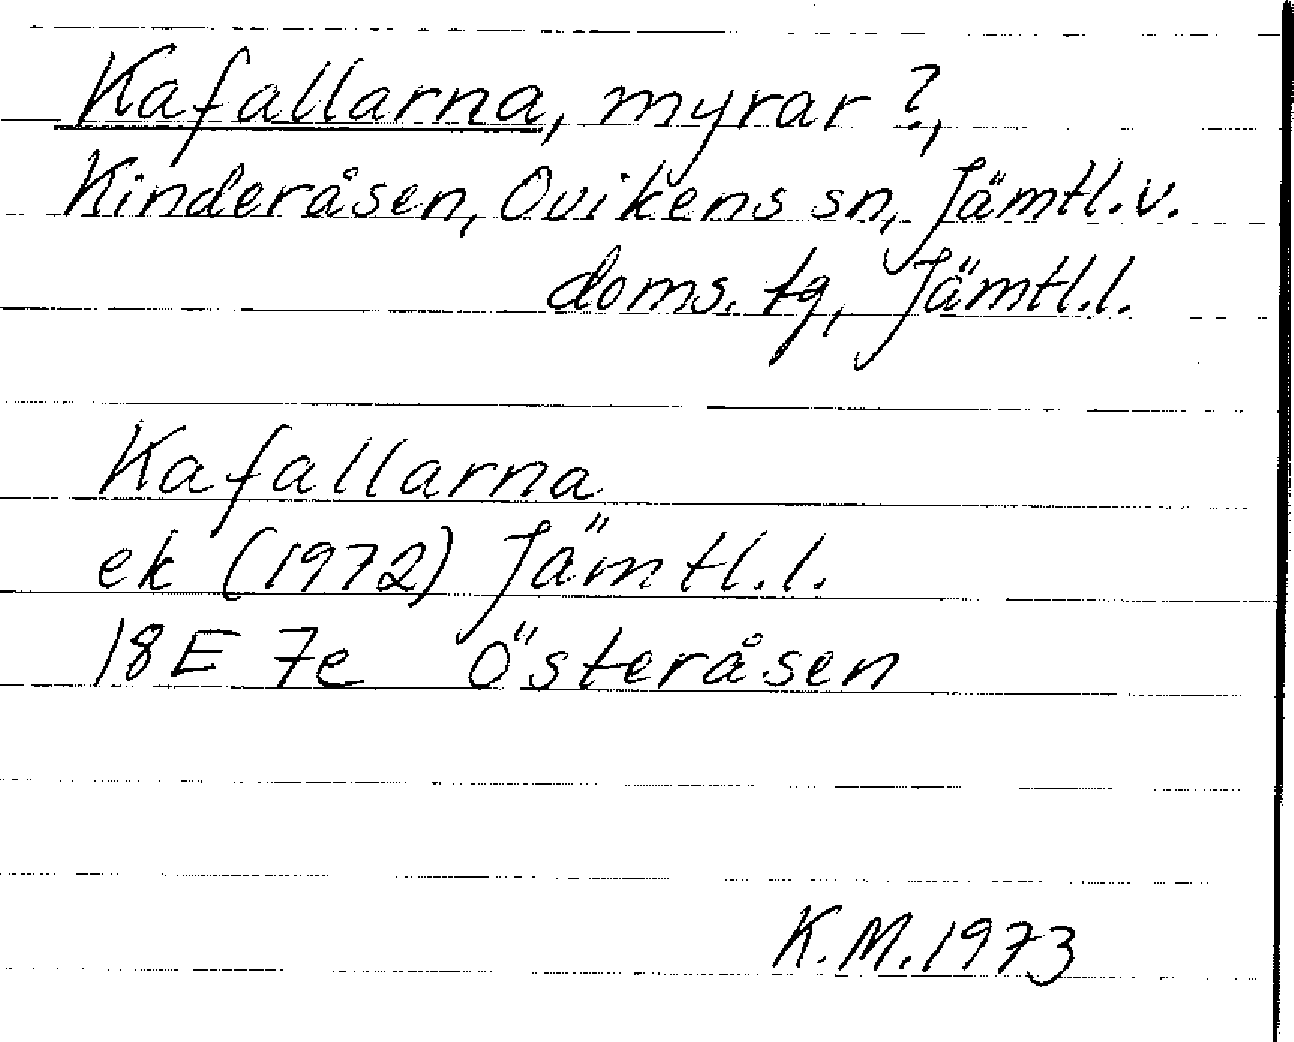 Kafallarna, myrar ?,
Kinderåsen, Ovikens sn, Jämtl.v.
doms. tg, Jämtl.l.
Kafallarna
ek (1972) Jämtl.l.
18E 7e Österåsen
K.M.1973